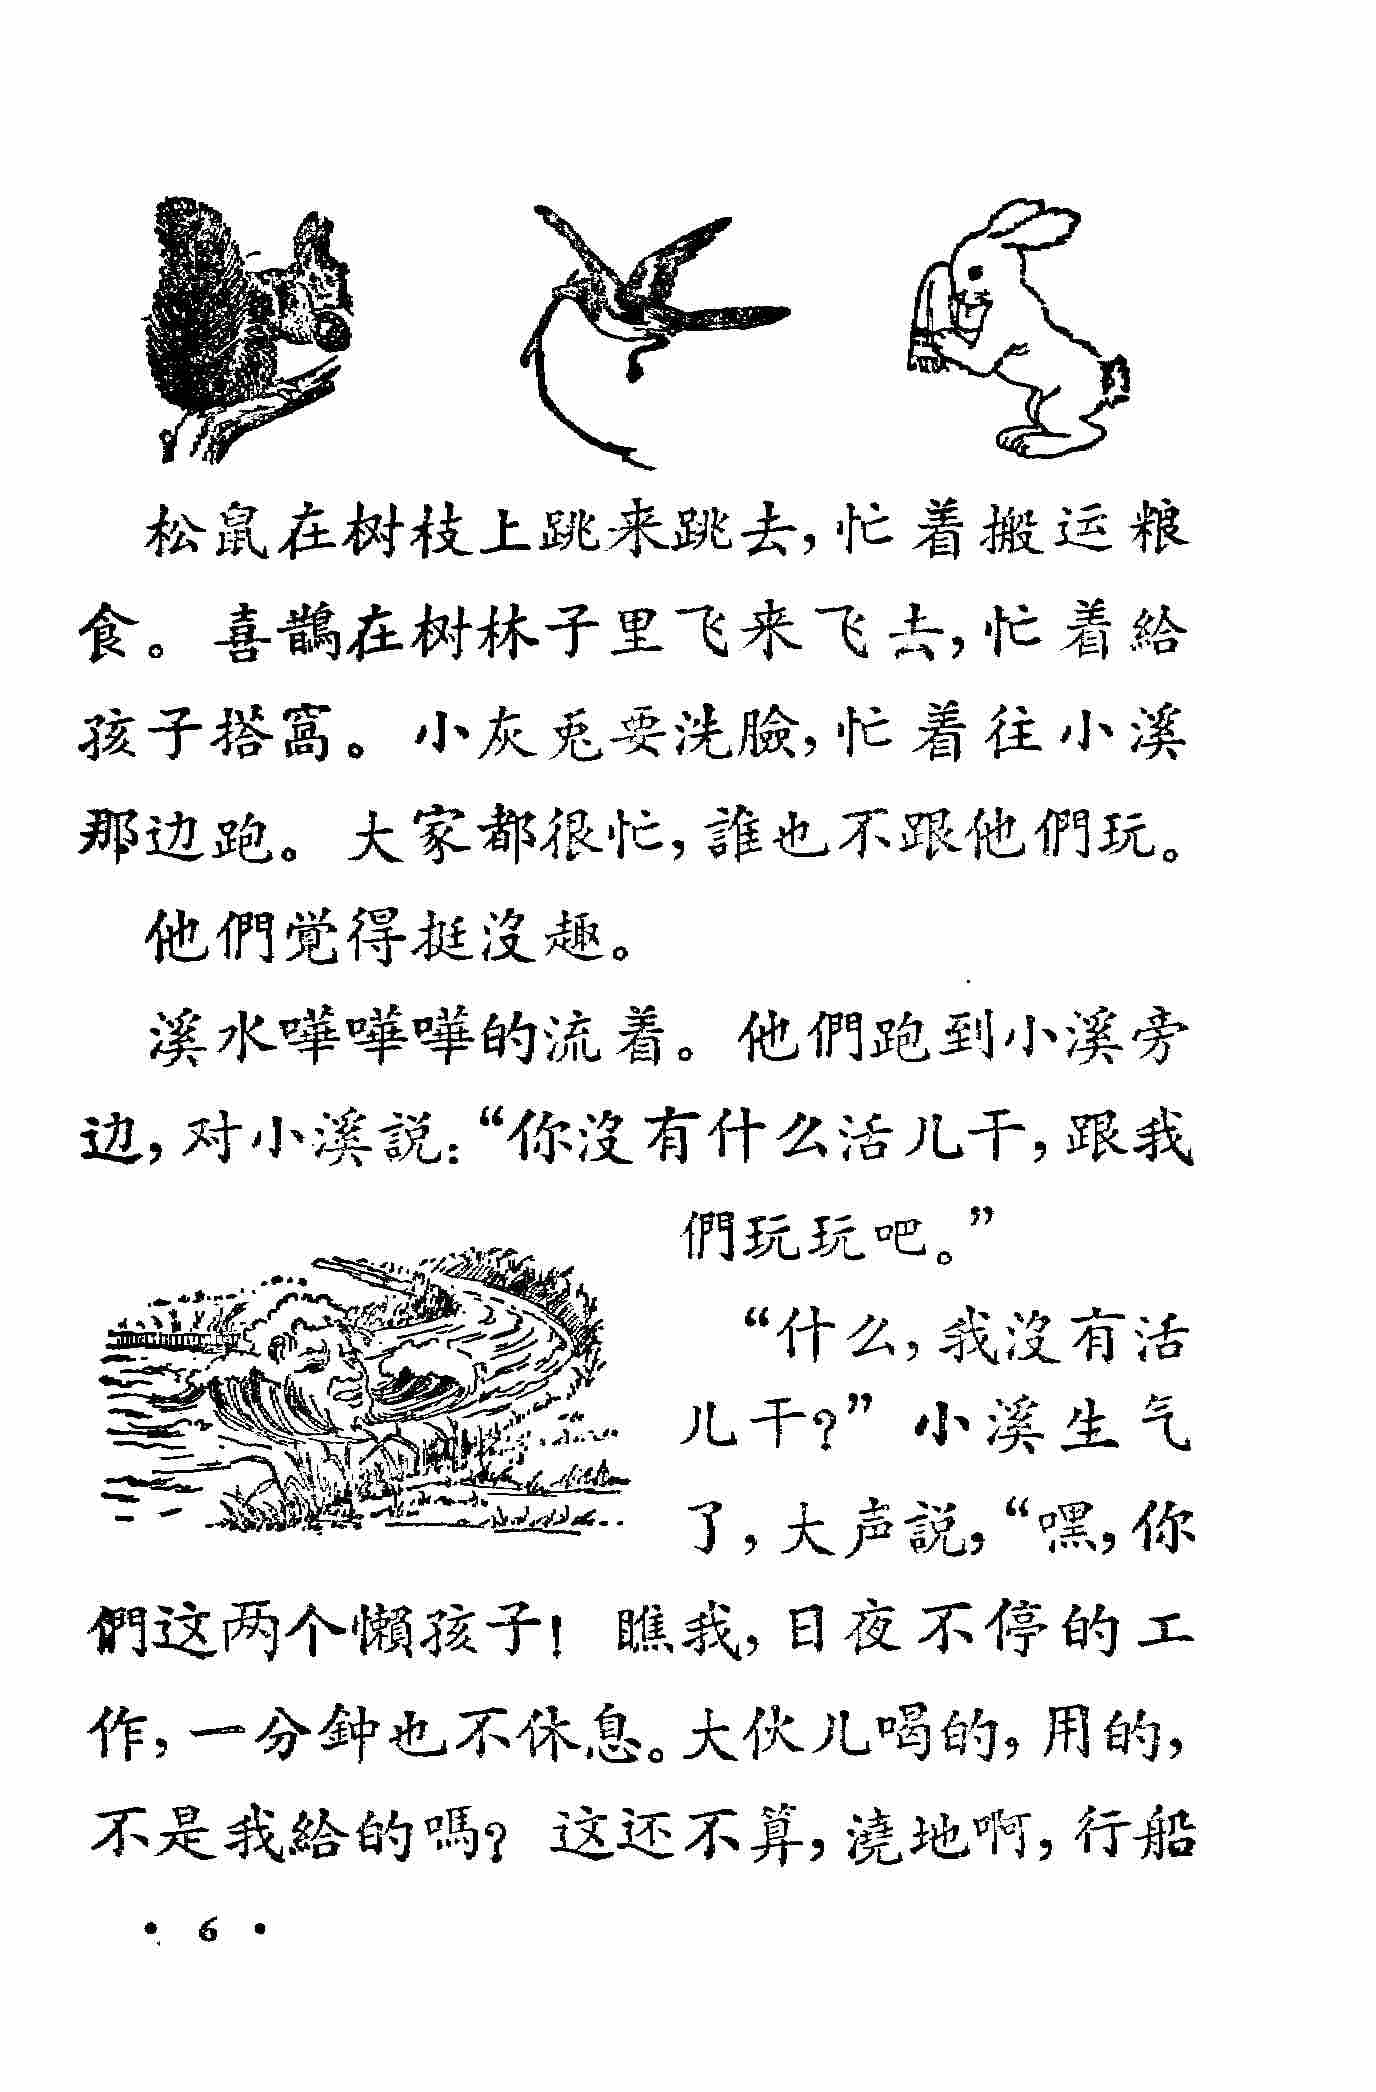 松鼠在树枝上跳来跳去，忙着搬运粮
食。喜鵲在树林子里飞来飞去，忙着給
孩子搭窩。小灰兎要洗臉，忙着往小溪
那边跑。大家都很忙，誰也不跟他們玩。
他們覚得挺沒趣。
溪水嘩嘩嘩的流着。他們跑到小溪旁
边，对小溪説：“你沒有什么活儿干，跟我
們玩玩吧。”
“什么，我沒有活
儿干？”小溪生气
了，大声説，“嘿，你
們这两个懶孩子！瞧我，日夜不停的工
作，一分鈡也不休息。大伙儿喝的，用的，
不是我給的嗎？这还不算，澆地啊，行船
• 6 •